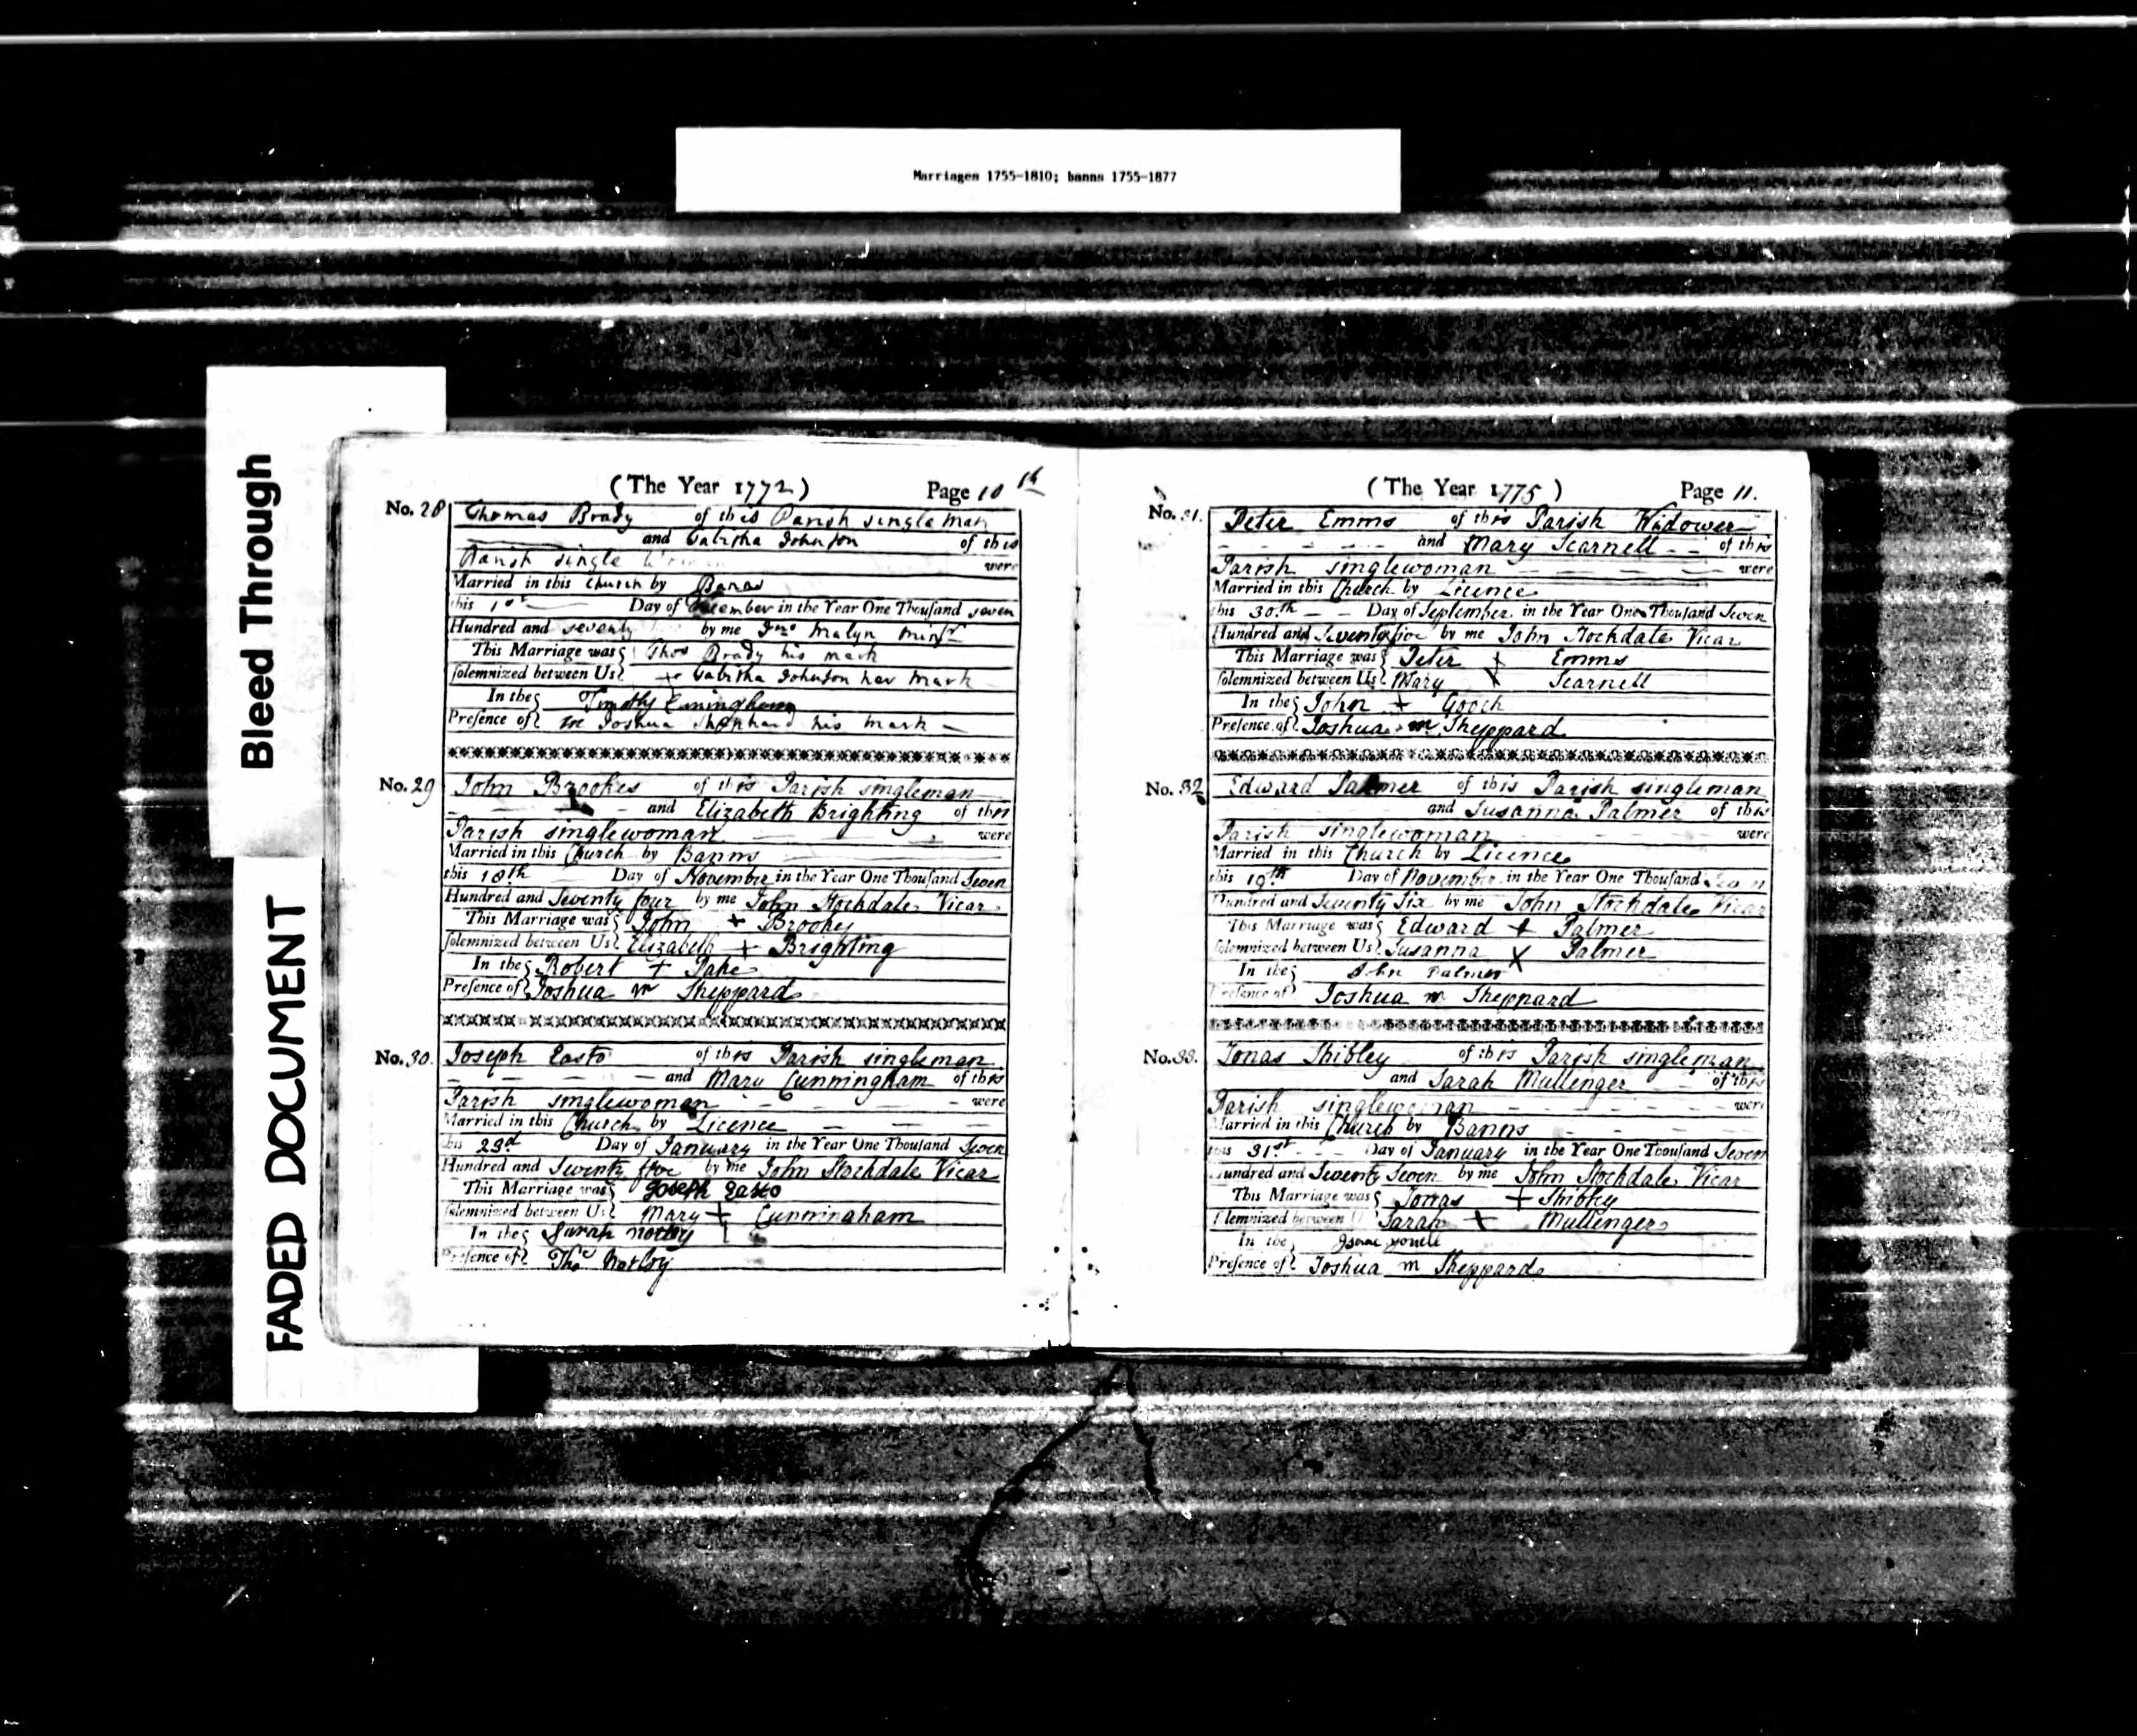 Marriages 1755-1810; banns 1755-1877
Bleed Through
FADED DOCUMENT
(The Year 1772) Page 10th
No. 28 Thomas Brady of this Parish single Man
and Tabitha Johnson of this
Parish single were
Married in this Church by Banns
this 1st Day of December in the Year One Thousand seven
Hundred and seventy by me Jno Malyn Minr
This Marriage was Thos Brady his mark
solemnized between Us + Tabitha Johnson her Mark
In the Timothy
Presence of m Joshua Shephard his mark
No. 29 John Brookes of this Parish singleman
and Elizabeth Brighting of this
Parish singlewoman were
Married in this Church by Banns
this 18th Day of November in the Year One Thousand Seven
Hundred and Seventy four by me John Stockdale Vicar
This Marriage was John + Brookes
solemnized between Us Elizabeth + Brighting
In the Robert + Pake
Presence of Joshua m Sheppard
No. 30. Joseph Easto of this Parish singleman
and Mary Cunningham of this
Parish singlewoman were
Married in this Church by Licence
this 23d Day of January in the Year One Thousand Seven
Hundred and Seventy five by me John Stockdale Vicar
This Marriage was Joseph Easto
solemnized between Us Mary + Cunningham
In the Sarah Notley
Presence of Thos Notley
(The Year 1775) Page 11.
No. 31. Peter Emms of this Parish Widower
and Mary Scarnell of this
Parish singlewoman were
Married in this Church by Licence
this 30th Day of September in the Year One Thousand Seven
Hundred and Seventy five by me John Stockdale Vicar
This Marriage was Peter + Emms
solemnized between Us Mary X Scarnell
In the John + Gooch
Presence of Joshua m Sheppard
No. 32 Edward Palmer of this Parish singleman
and Susanna Palmer of this
Parish singlewoman were
Married in this Church by Licence
this 19th Day of November in the Year One Thousand Seven
Hundred and Seventy Six by me John Stockdale Vicar
This Marriage was Edward + Palmer
solemnized between Us Susanna X Palmer
In the John Palmer
Presence of Joshua m Sheppard
No. 33. Jonas Shibley of this Parish singleman
and Sarah Mullenger of this
Parish singlewoman were
Married in this Church by Banns
this 31st Day of January in the Year One Thousand Seven
Hundred and Seventy Seven by me John Stockdale Vicar
This Marriage was Jonas + Shibley
solemnized between Sarah + Mullenger
In the Isaac Youell
Presence of Joshua m Sheppard